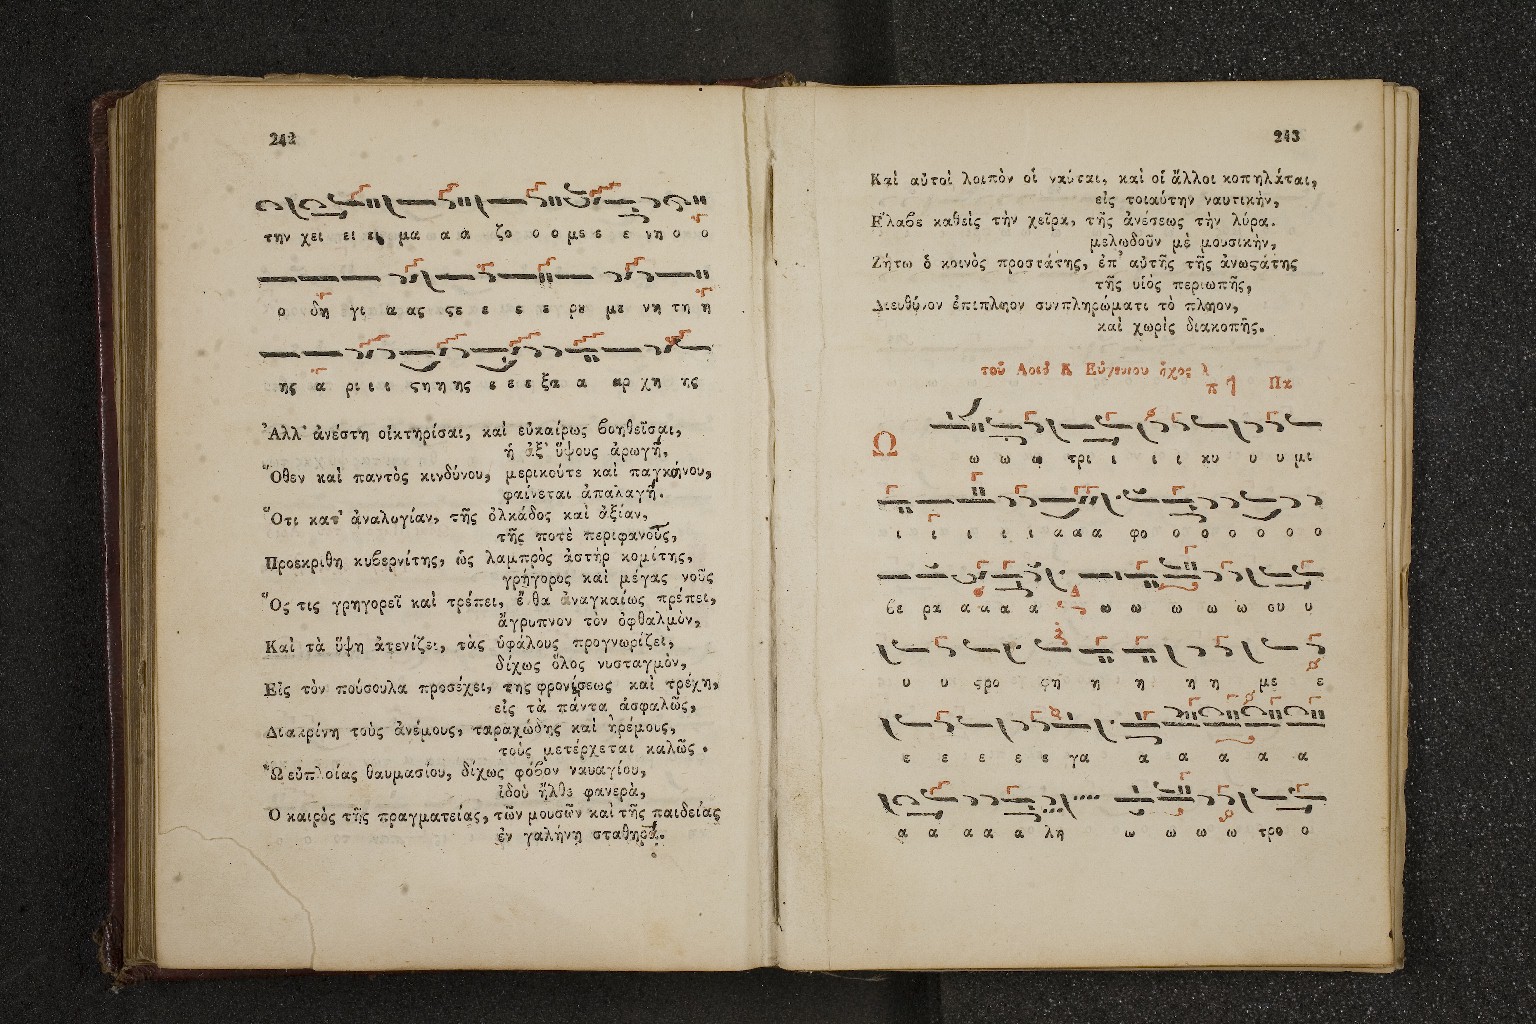 242
την χει ει ει μα α α ζο ο ο με ε ε νη ο ο
ο δη γι α ας ςε ε ε ε ρȣ με νη τη η
ης α ρι ι ι ςη η ης ε ε ε ξα α αρ χη ης
Ἀλλ' ἀνέστη οἰκτηρίσαι, καὶ εὐκαίρως βοηθεῖσαι,
ἡ ἀξ' ὕψους ἀρωγὴ,
Ὅθεν καὶ παντὸς κινδύνου, μερικούτε καὶ παγκοίνου,
φαίνεται ἀπαλαγή.
Ὅτι κατ' ἀναλογίαν, τῆς ὁλκάδος καὶ ἀξίαν,
τῆς ποτὲ περιφανοῦς,
Προεκριθη κυβερνίτης, ὡς λαμπρὸς ἀστὴρ κομίτης,
γρήγορος καὶ μέγας νοῦς
Ὅς τις γρηγορεῖ καὶ τρέπει, ἔνθα ἀναγκαίως πρέπει,
ἄγρυπνον τὸν ὀφθαλμὸν,
Καὶ τὰ ὕψη ἀτενίζει, τὰς ὑφάλους προγνωρίζει,
δίχως ὅλος νυσταγμὸν,
Εἰς τὸν πούσουλα προσέχει, της φρονίσεως καὶ τρέχη,
εἰς τὰ πάντα ἀσφαλῶς,
Διακρίνη τοὺς ἀνέμους, ταραχώδης καὶ ἠρέμους,
τοὺς μετέρχεται καλῶς.
Ὢ εὐπλοίας θαυμασίου, δίχως φόβον ναυαγίου,
ἰδοὺ ἦλθε φανερὰ,
Ὁ καιρὸς τῆς πραγματείας, τῶν μουσῶν καὶ τῆς παιδείας
ἐν γαλήνη σταθηρᾷ.
243
Καὶ αὐτοὶ λοιπὸν οἱ ναύται, καὶ οἱ ἄλλοι κοπηλάται,
εἰς τοιαύτην ναυτικὴν,
Ἔλαβε καθεὶς τὴν χεῖρα, τῆς ἀνέσεως τὴν λύρα.
μελωδοῦν μὲ μουσικὴν,
Ζήτω ὁ κοινὸς προστάτης, ἐπ' αὐτῆς τῆς ἀνωτάτης
τῆς υἱὸς περιωπῆς,
Διευθύνον ἐπιπλῃον συνπληρώματι τὸ πλῃον,
καὶ χωρὶς διακοπῆς.
τοῦ Αοιδ Κ Εὐγενίου ἦχος λ π ᾳ Πα
Ω ω ω ω τρι ι ι ι κυ υ υ μι
ι ι ι ι ι α α α φο ο ο ο ο ο ο
βε ρα α α α α ω ω ω ω ω ου υ
υ υ ςρο φη η η η η με ε
ε ε ε ε ε γα α α α α α
α α α α α λη ω ω ω ω τρο ο